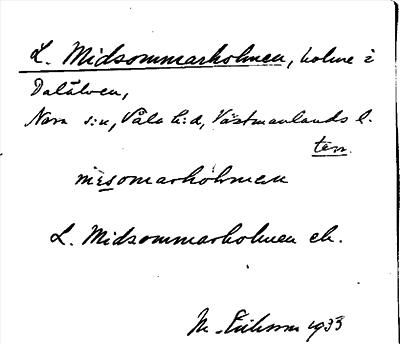 L. Midsommarholmen, holme i
Dalälven,
Norn s:n, Våla h:d, Västmanlands l.
terr.
mesomarholmen
L. Midsommarholmen ek.
M. Eriksson 1933